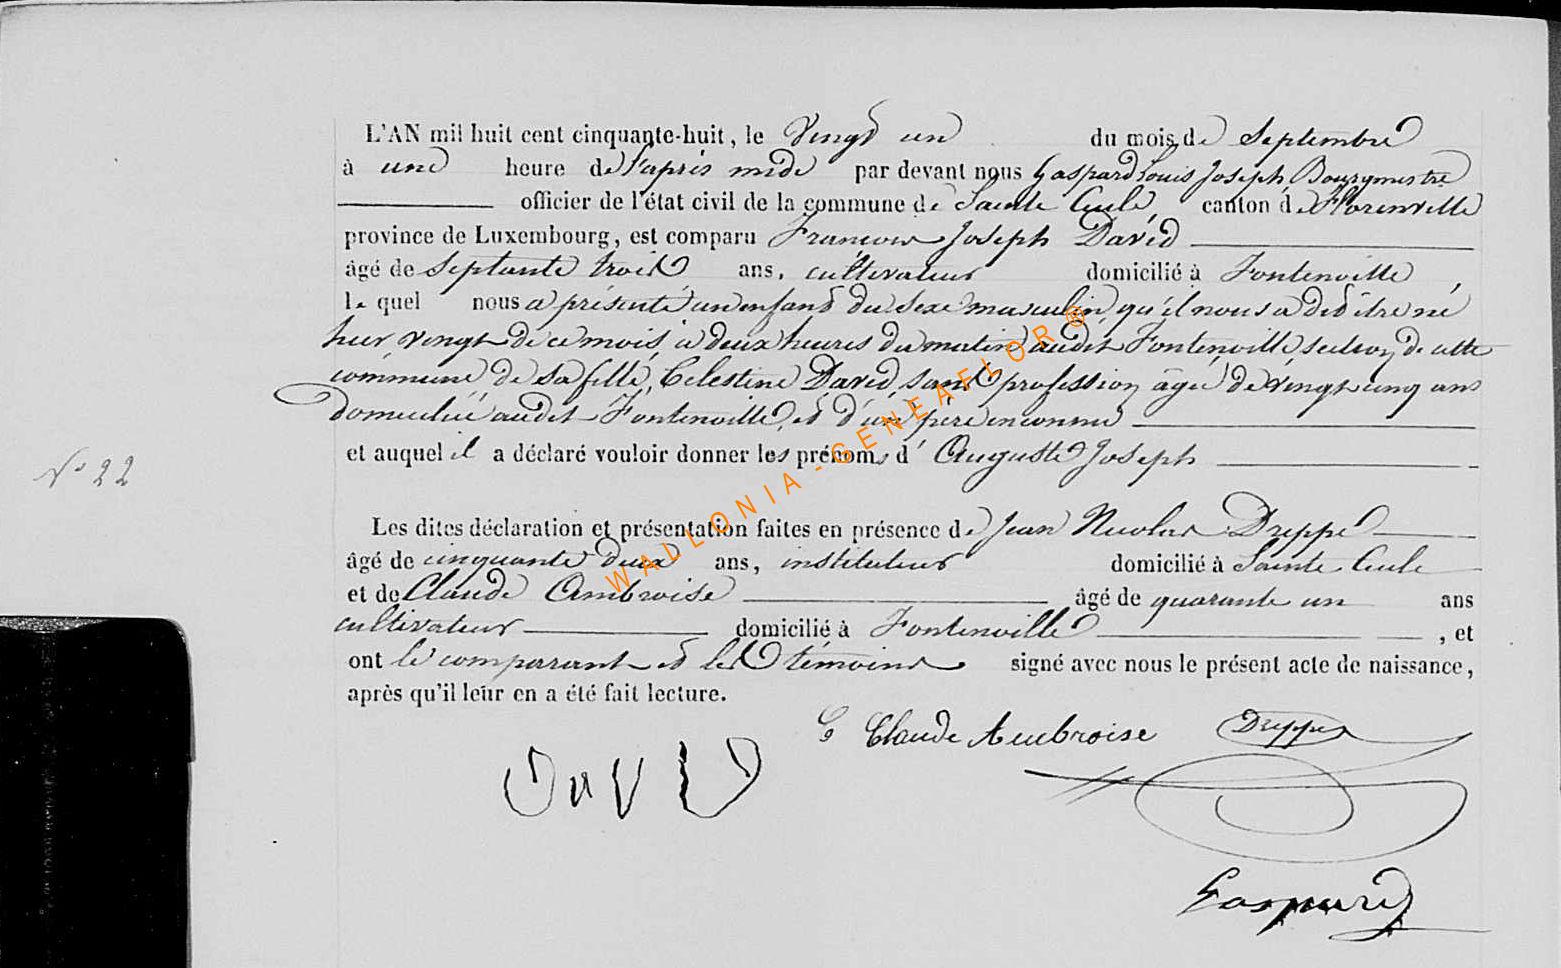 L'AN mil huit cent cinquante-huit, le Vingt un du mois de Septembre
à une heure de l'après midi par devant nous Gaspard Louis Joseph Bourgmestre
officier de l'état civil de la commune de Sainte Cécile canton de Florenville
province de Luxembourg, est comparu François Joseph David
âgé de septante trois ans, cultivateur domicilié à Fontenoille,
lequel nous a présenté un enfant du sexe masculin qu'il nous a dit être né
hier vingt de ce mois à deux heures du matin audit Fontenoille, section de cette
commune de sa fille, Celestine David, sans profession âgée de vingt cinq ans
domiciliée audit Fontenoille, et d'un père inconnu
et auquel il a déclaré vouloir donner les prénoms d'Auguste Joseph
N° 22
Les dites déclaration et présentation faites en présence de Jean Nicolas Dreppe
âgé de cinquante deux ans, instituteur domicilié à Sainte Cécile
et de Claude Ambroise âgé de quarante un ans
cultivateur domicilié à Fontenoille, et
ont le comparant et les témoins signé avec nous le présent acte de naissance,
après qu'il leur en a été fait lecture.
Claude Ambroise Dreppe
David
Gaspard
WALLONIA-GENEAFLOR®